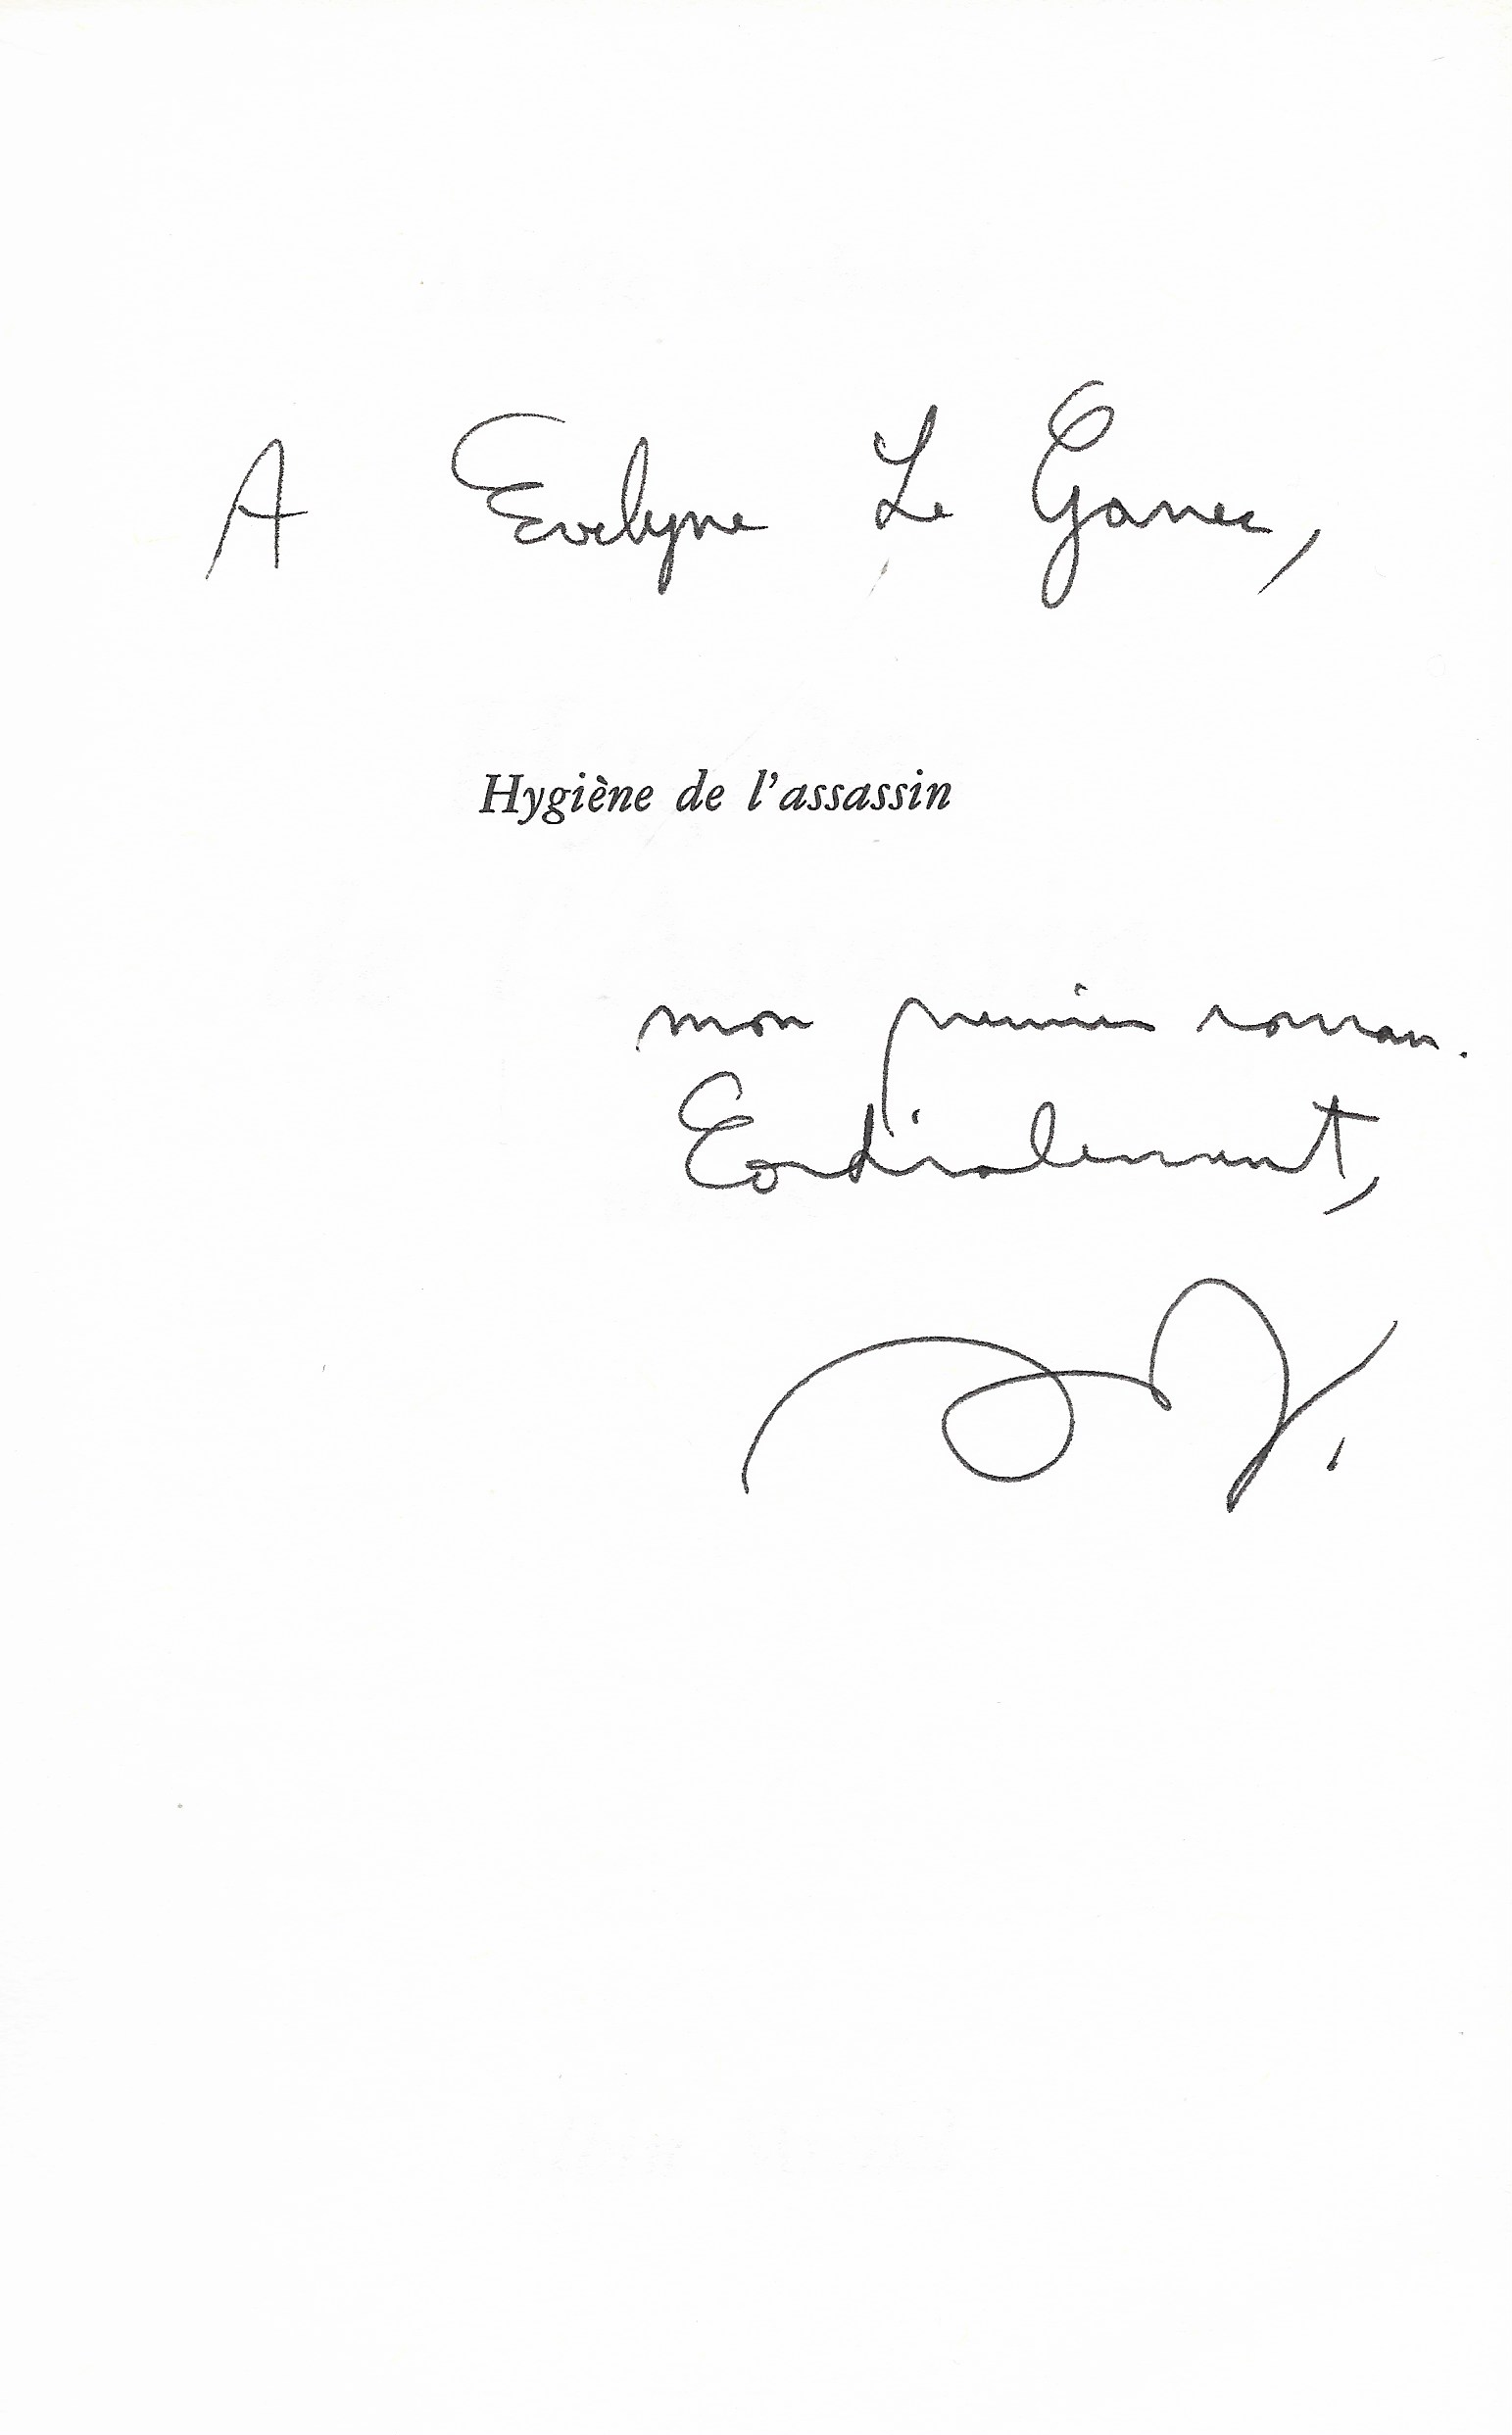 A Evelyne Le Garrec,
Hygiène de l'assassin
mon premier roman.
Cordialement,